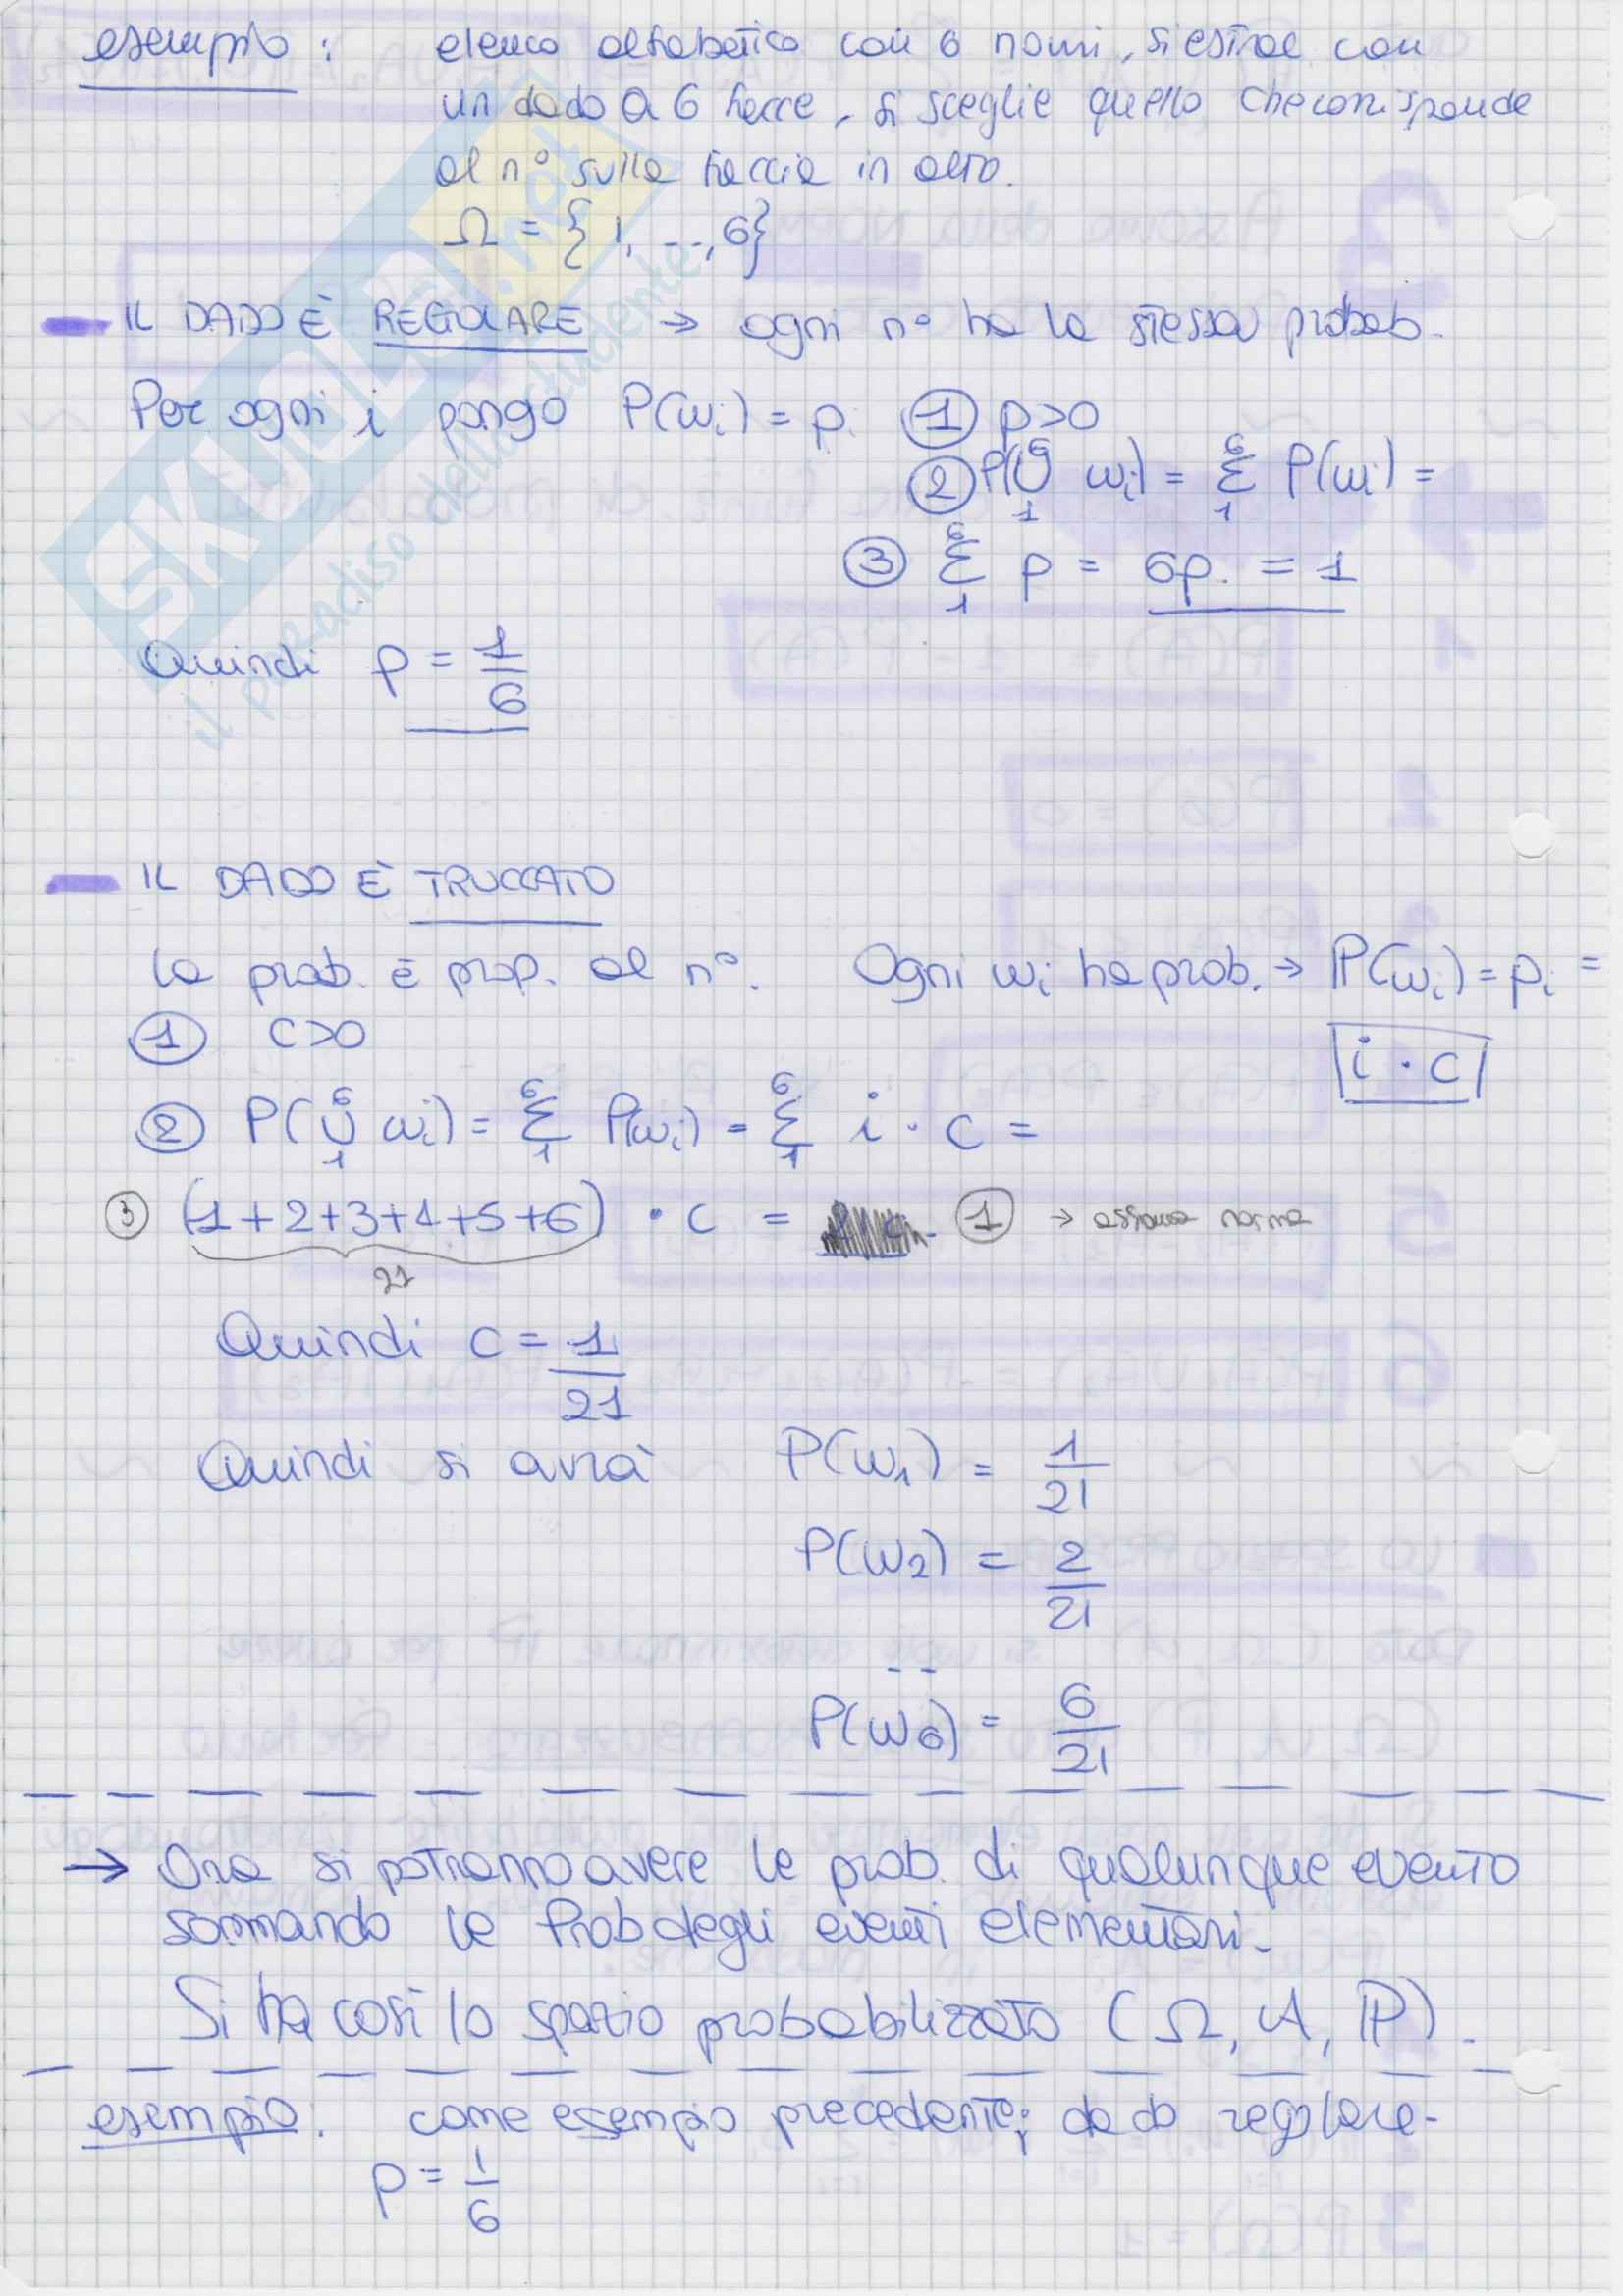 esempio : elenco alfabetico con 6 nomi, si estrae con
un dado a 6 facce, si sceglie quello che corrisponde
al n° sulla faccia in alto.
Ω = { 1, --, 6}
IL DADO È REGOLARE → ogni n° ha la stessa probab.
Per ogni i pongo P(ωi) = p. ① p>0
② P(⋃₁⁶ ωi) = Σ₁⁶ P(ωi) =
③ Σ₁⁶ p = 6p. = 1
Quindi p = 1/6
IL DADO È TRUCCATO
la prob. è prop. al n°. Ogni ωi ha prob. → P(ωi) = pi =
① c>0
i · c
② P(⋃₁⁶ ωi) = Σ₁⁶ P(ωi) = Σ₁⁶ i · c =
③ (1+2+3+4+5+6) · c = ① → assioma norma
21
Quindi c = 1/21
Quindi si avrà P(ω1) = 1/21
P(ω2) = 2/21
--
P(ω6) = 6/21
→ Ora si potranno avere le prob. di qualunque evento
sommando le Prob degli eventi elementari.
Si ha così lo spazio probabilizzato (Ω, A, P).
esempio: come esempio precedente; dado regolare-
p = 1/6
SKUOLA.net
il paradiso dello studente